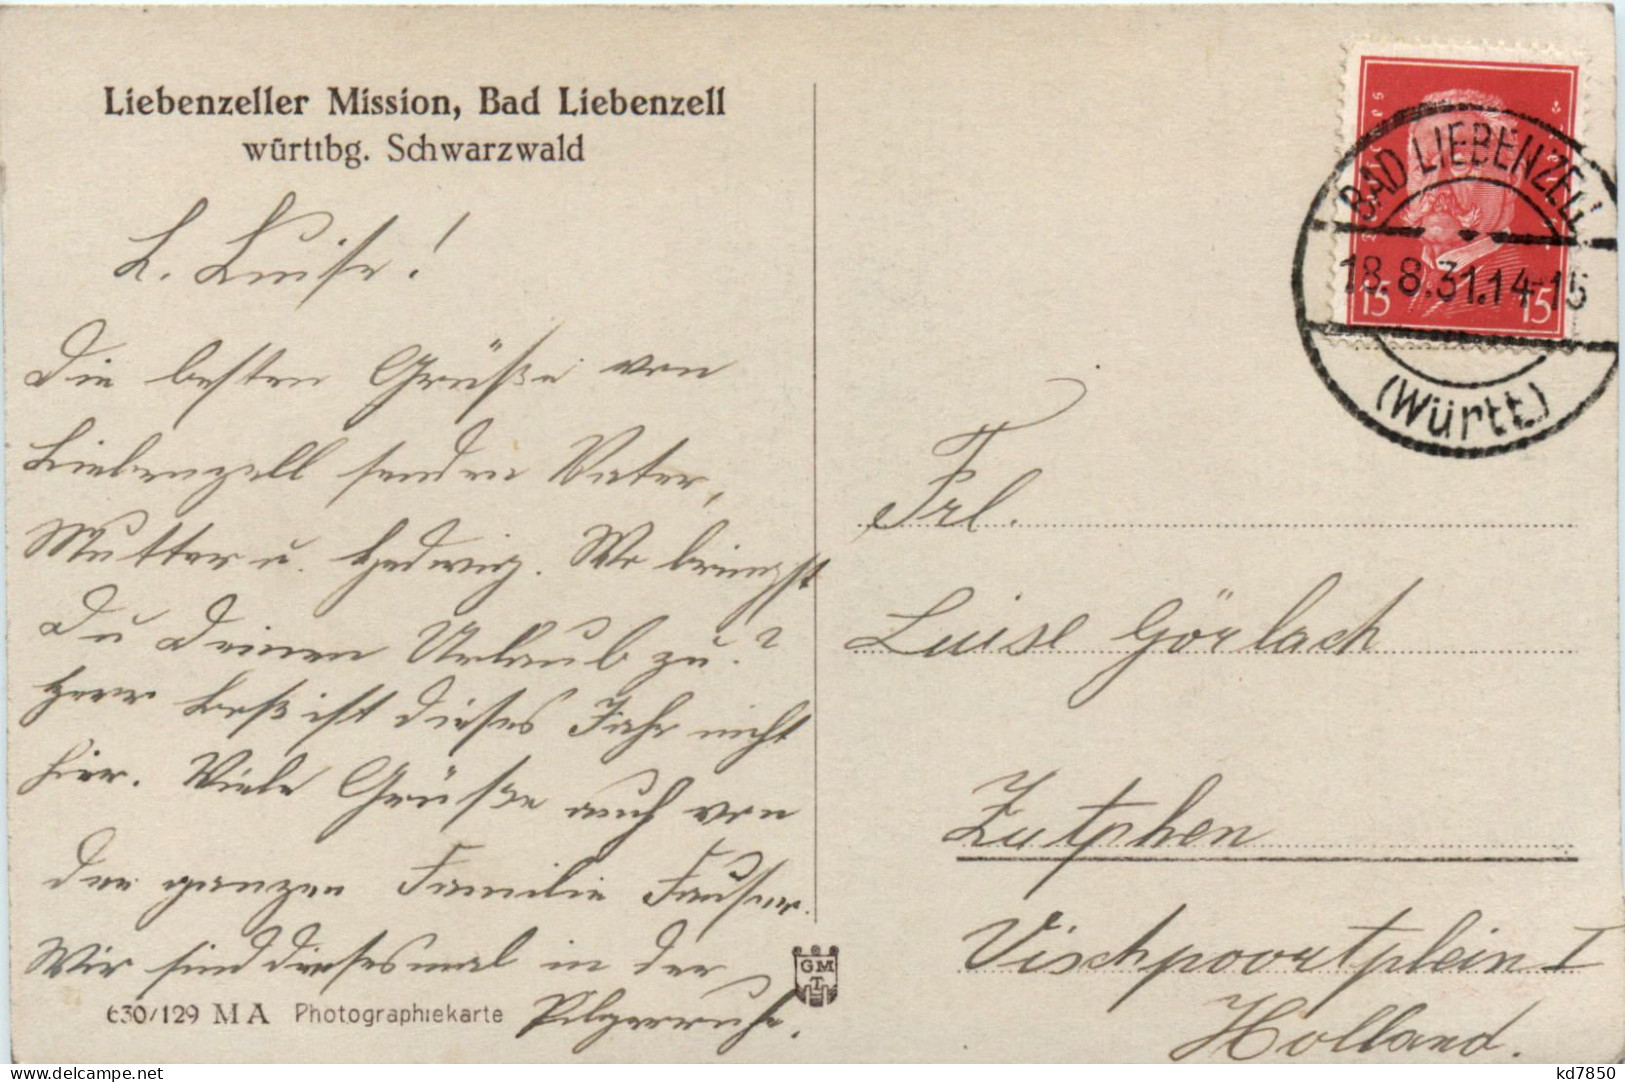 Liebenzeller Mission, Bad Liebenzell
württbg. Schwarzwald
L. Luise!
Die besten Grüße von
Liebenzell senden Vater,
Mutter u. Hedwig. Wo bringst
Du Deinen Urlaub zu?
Herr ist dieses Jahr nicht
hier. Viele Grüße auch von
der ganzen Familie Fauser.
Wir sind diesesmal in der
Pilgerruhe.
630/129 MA Photographiekarte
GMT
15 15
BAD LIEBENZELL
18.8.31.14-15
(Württ)
Frl.
Luise Görlach
Zutphen
Vischpoortplein I
Holland.
delcampe.net
kd7850